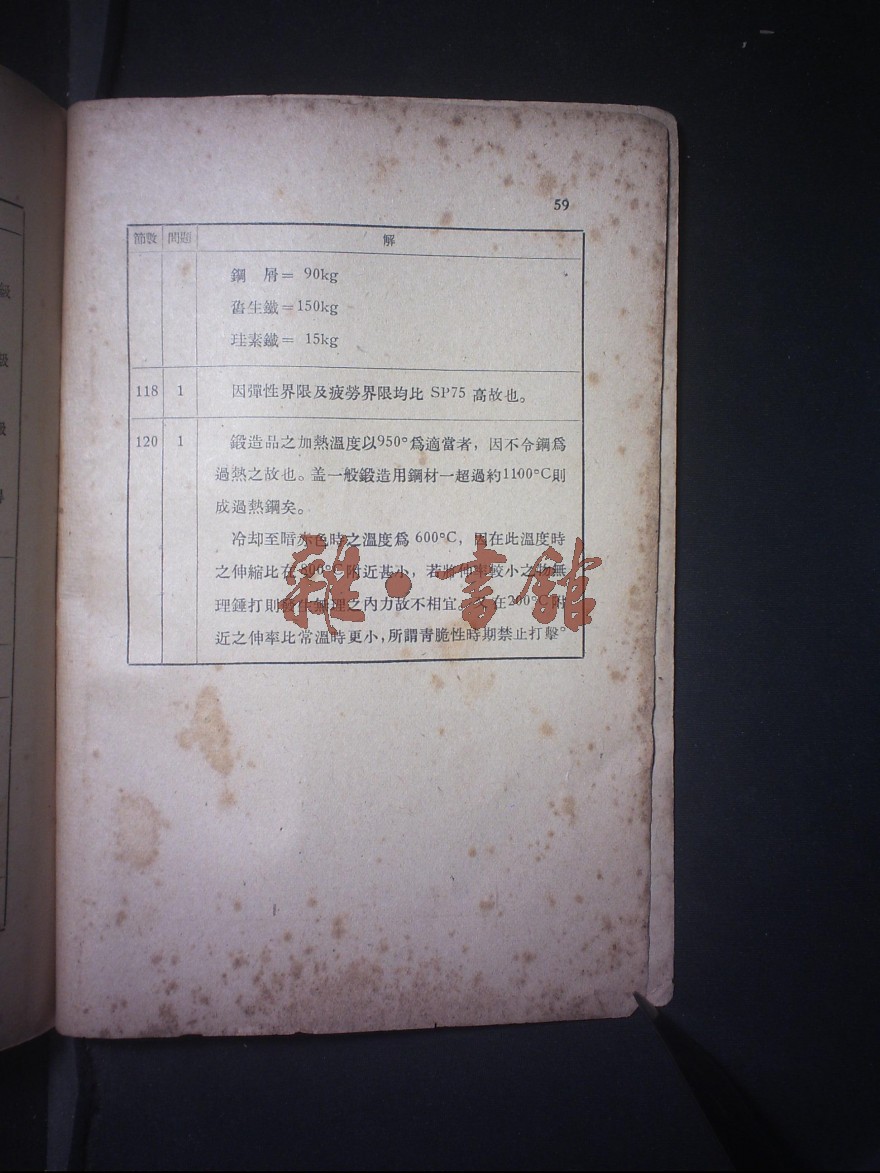 59
節數 問題 解
鋼 屑＝ 90kg
舊生鐵＝150kg
珪素鐵＝ 15kg
118 1 因彈性界限及疲勞界限均比 SP75 高故也。
120 1 鍛造品之加熱溫度以950°爲適當者，因不令鋼爲
過熱之故也。盖一般鍛造用鋼材一超過約1100°C則
成過熱鋼矣。
冷却至暗赤色時之溫度爲 600°C，因在此溫度時
之伸縮比在 800°C附近甚小，若將伸率較小之物無
理錘打則發生無理之內力故不相宜。又在200°C附
近之伸率比常溫時更小，所謂青脆性時期禁止打擊。
雜·書館